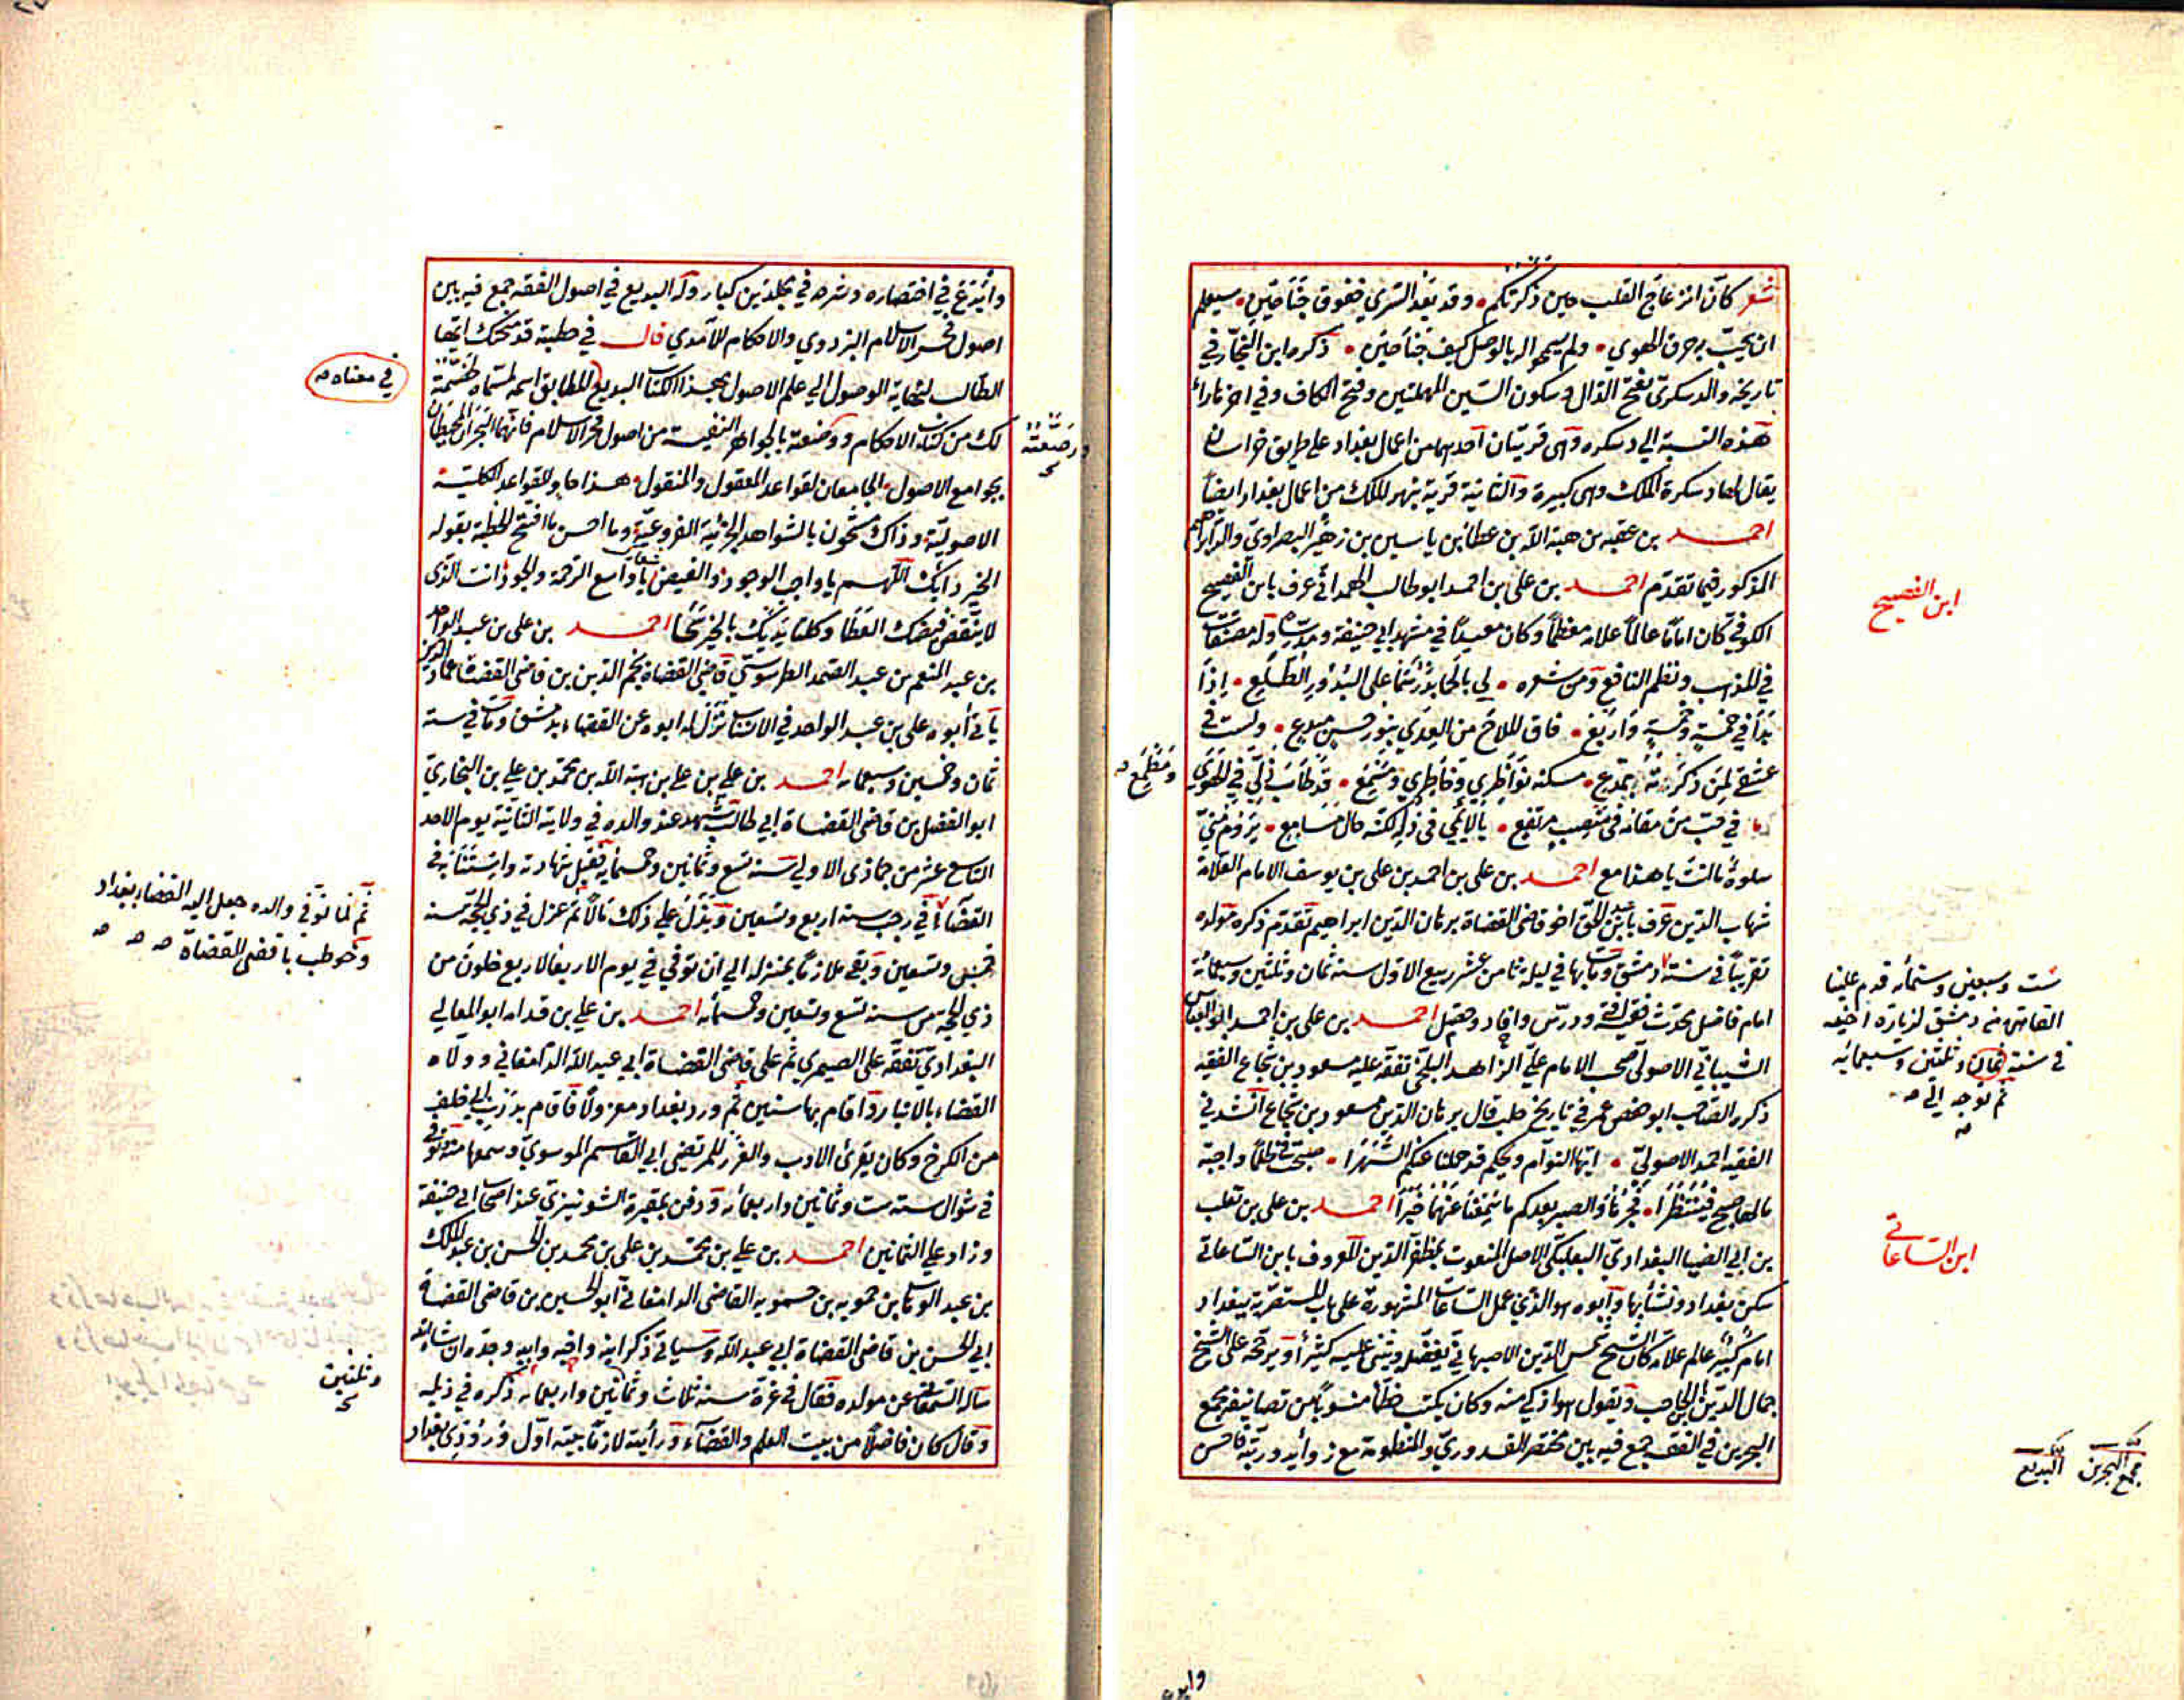 شعر كأن انزعاج القلب حين ذكرتكم وقد بعد المسري خفوق جناحين سيعلم
ان يحب برحق الهوي ولم يسمحوا لي بالوصل كيف جنا حيني ذكره ابن النجار في
تاريخه والدسكري بفتح الدال وسكون السين المهملتين وفتح الكاف وفي اخرها راء
هذه النسبة الي دسكره وهي قريتان احدهما من اعمال بغداد علي طريق خراسان
يقال لها دسكرة الملك وهي كبيرة والثانية قرية بنهر الملك من اعمال بغداد ايضا
احمد بن عقبه بن هبة الله بن عطا بن ياسين بن زهير البصراوي والد ابراهيم
المذكور فيما تقدم احمد بن علي بن احمد ابو طالب الهمداني عرف بابن الفصيح
الكوفي كان اماما عالما علامه معظما وكان معيدا في مشهد ابي حنيفة ومدرسا وله مصنفات
في المذهب ونظم النافع ومن شعره لي بالحما بدر سما علي البدور الطلع اذا
بدا في خمسة وخمسة واربع فاق الملاح من العدي بنور حسن مبدع ولست في
عشقي لمن ذكرته بمدع مسكنه نواظري وخاطري ومسمع قد طاب لي في الهوي
في حب من مقامه في منصب مرتفع يا لائمي في ذكر كنه حال مسامع يروم مني
سلوة ما لنت يا هذا مع احمد بن علي بن احمد بن علي بن يوسف الامام العلامة
شهاب الدين عرف بابن عبد الحق اخو قاضي القضاة برهان الدين ابراهيم تقدم ذكره مولده
تقريبا في سنة دمشق ومات بها في ليلة ثامن عشر ربيع الاول سنة ثمان وثلثين وسبعمائة
امام فاضل محدث فقيه افتي ودرس وافاد وحصل احمد بن علي بن احمد ابو العباس
الشيباني الاصولي صحب الامام علي الزاهد البلخي تفقه عليه مسعود بن شجاع الفقيه
ذكره الصاحب ابو حفص عمر في تاريخ حلب قال برهان الدين مسعود بن شجاع انشدني
الفقيه احمد الاصولي ايها النوام ويحكم قد حملنا عنكم السهرا
ما لها صبح فينتظرا فجرنا والصبر بعدكم ما سمعنا عنهما خبرا احمد بن علي بن تغلب
بن ابي الضيا البغدادي البعلبكي الاصل المنعوت بمظفر الدين المعروف بابن الساعاتي
سكن بغداد ونشأ بها وابوه هو الذي عمل الساعات المشهورة علي باب المستنصرية ببغداد
امام كبير عالم علامه كان الشيخ شمس الدين الاصبهاني يفضله ويثني عليه كثيرا ويرجحه علي الشيخ
جمال الدين ابن الحاجب ويقول هو اذكي منه وكان يكتب خطا منسوبا من تصانيفه مجمع
البحرين في الفقه جمع فيه بين مختصر القدوري والمنظومة مع زوايد ورتبه فاحسن
ابن الفصيح
ومطمع
ست وسبعين وستمائه قدم علينا
القاهرة من دمشق لزيارة اخيه
في سنة ثمان وثلثين وسبعمائه
ثم توجه الي
ابن الساعاتي
مجمع البحرين البديع
وابدع
وابدع في اختصاره وشرحه في مجلدين كبار وله البديع في اصول الفقه جمع فيه بين
اصول فخر الاسلام البزدوي والاحكام للآمدي قال في خطبته قد منحتك ايها
الطالب لنهاية الوصول الي علم الاصول بهذا الكتاب البديع المطابق اسمه لمسماه لخصته
لك من كتاب الاحكام ووضعته بالجواهر النفيسة من اصول فخر الاسلام فانهما البحران المحيطان
بجوامع الاصول الجامعان لقواعد المعقول والمنقول هذا حاو للقواعد الكلية
الاصولية وذاك مشحون بالشواهد الجزئية الفروعية وما احسن ما افتتح الخطبة بقوله
الخير دأبك اللهم يا واجب الوجود والفيض شعارك يا واسع الرحمة والجود انت الذي
لا ينقص فيضك العطا وكلتا يديك بالخير سحا احمد بن علي بن عبد الواحد
بن عبد المنعم بن عبد الصمد الطرسوسي قاضي القضاة نجم الدين بن قاضي القضاة عماد الدين
يأتي ابوه علي بن عبد الواحد في الانساب نزل له ابوه عن القضاء بدمشق ومات في سنة
ثمان وخمسين وسبعمائه احمد بن علي بن علي بن هبة الله بن محمد بن علي بن البخاري
ابو الفضل بن قاضي القضاة ابي طالب شهد عند والده في ولايته الثانية يوم الاحد
التاسع عشر من جماذي الاولي سنة تسع وثمانين وخمسمأية فقبل شهادته واستنابه في
القضاء في رجب سنة اربع وتسعين وبذل علي ذلك مالا ثم عزل في ذي الحجة سنة
خمس وتسعين وبقي ملازما بمنزله الي ان توفي في يوم الاربعا لاربع خلون من
ذي الحجة من سنة تسع وتسعين وخمسمائه احمد بن علي بن قدامه ابو المعالي
البغدادي تفقه علي الصيمري ثم علي قاضي القضاة ابي عبد الله الدامغاني وولاه
القضاء بالانبار واقام بها سنين ثم ورد بغداد معزولا فاقام بدرب ابي خلف
من الكرخ وكان يقرئ الادب والغرر للمرتضي ابي القاسم الموسوي وسمعها منه توفي
في شوال سنة ست وثمانين واربعمائه ودفن بمقبرة الشونيزي عند اصحاب ابي حنيفة
وزاد علي الثمانين احمد بن علي بن محمد بن علي بن محمد بن الحسن بن عبد الملك
بن عبد الوهاب بن حمويه بن حسنويه القاضي الدامغاني ابو الحسين بن قاضي القضاة
ابي الحسن بن قاضي القضاة ابي عبد الله وسياتي ذكر ابنه واخيه وابيه وجده ان شا الله
ساله السمعاني عن مولده فقال في غرة سنة ثلاث وثمانين واربعمائه ذكره في ذيله
وقال كان فاضلا من بيت العلم والقضاء ورأيته لازما بيته اول ورودي بغداد
في معناه
ورصعته
ثم لما توفي والده جعل اليه القضا ببغداد
وخوطب باقضي القضاة
وثلثين